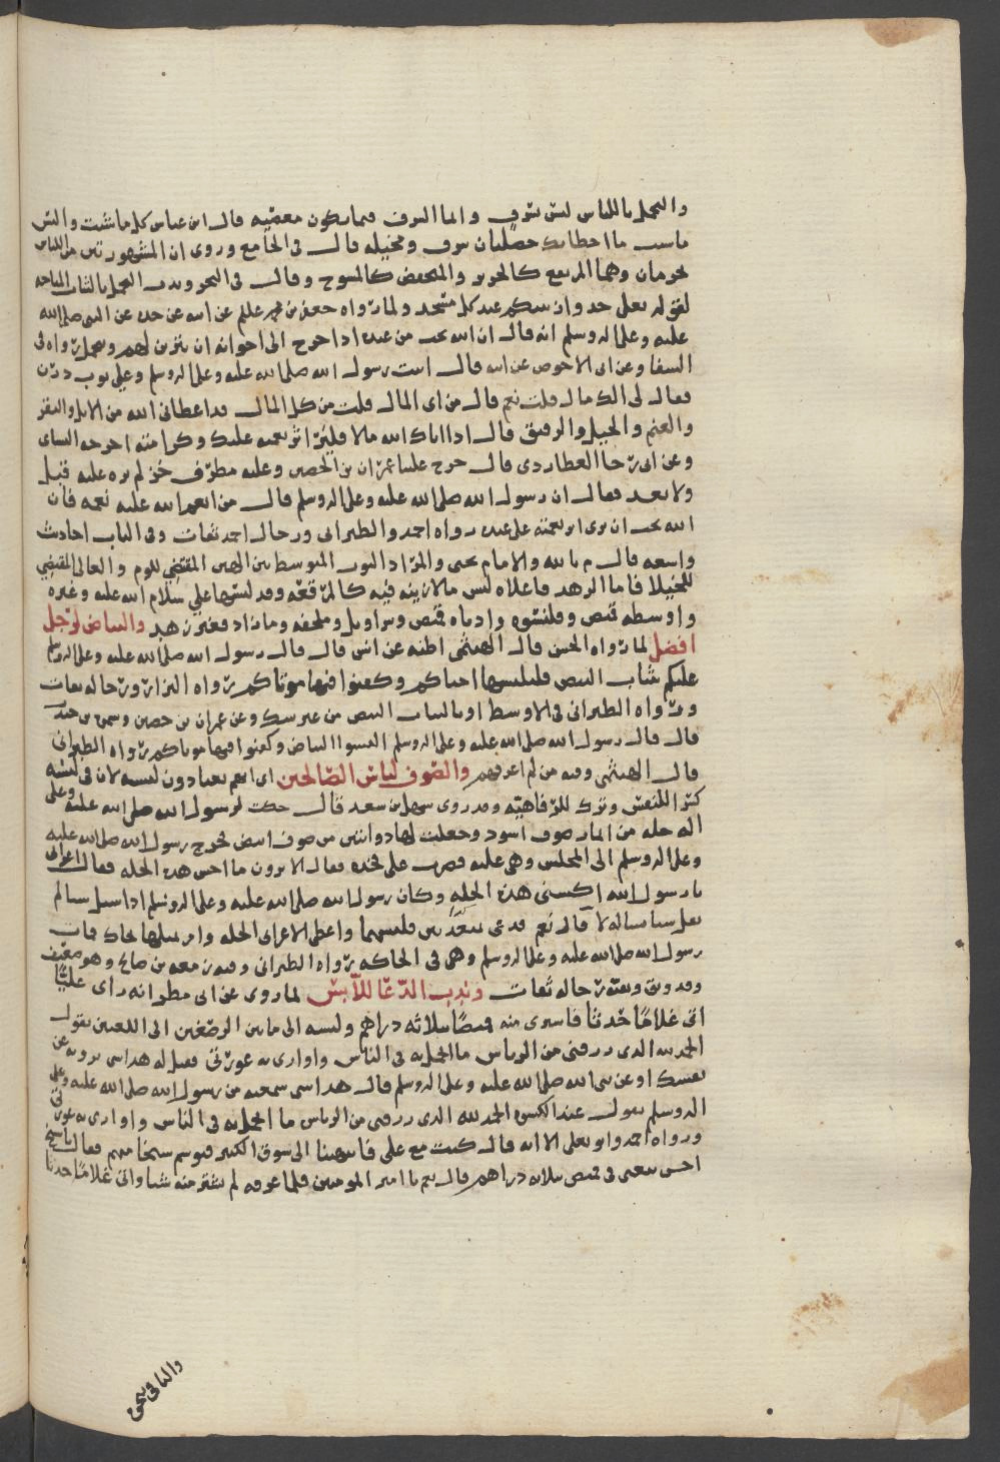 والتجمل باللباس ليس بسرف وانما السرف فيما يكون معصيه قال ابن عباس كل ما شئت والبس
ما شئت ما اخطاتك خصلتان سرف ومخيله قال في الجامع وروي ان المشهورتين من اللباس
محرمان وهما المرتفع كالحرير والمنخفض كالمسوح وقال في البحر وندب التجمل بالثياب المباحه
لقوله تعالى خذوا زينتكم عند كل مسجد ولما رواه جعفر بن محمد عن ابيه عن جده عن النبي صلى الله
عليه وعلى اله وسلم انه قال ان الله يحب من عبده اذا خرج الى اخوانه ان يتزين لهم ويتجمل رواه في
الشفا وعن ابي الاحوص عن ابيه قال اتيت رسول الله صلى الله عليه وعلى اله وسلم وعلي ثوب دون
فقال لي الك مال قلت نعم قال من اي المال قلت من كل المال قد اعطاني الله من الابل والبقر
والغنم والخيل والرقيق قال اذا اتاك الله مالا فلير اثر نعمه عليك وكرامته اخرجه النساي
وعن ابي رجا العطاردي قال خرج علينا عمران بن الحصين وعليه مطرف خز لم نره عليه قبل
ولا بعد فقال ان رسول الله صلى الله عليه وعلى اله وسلم قال من انعم الله عليه نعمه فان
الله يحب ان يرى اثر نعمته على عبده رواه احمد والطبراني ورجال احمد ثقات وفي الباب احاديث
واسعه قال م بالله والامام يحيى والمراد الثوب المتوسط بين الهين المقتضي للوم والعالي المقتضي
للخيلا فاما الزهد فاعلاه لبس ما لا زينه فيه كالمرقعه وقد لبسها علي سلام الله عليه وغيره
واوسطه قميص وقلنسوه وادناه قميص وسراويل وملحفه وما زاد فغير زهد والبياض لرجل
افضل لما رواه الحسن قال الهيثمي اظنه عن انس قال قال رسول الله صلى الله عليه وعلى اله وسلم
عليكم بثياب البيض فليلبسها احياكم وكفنوا فيها موتاكم رواه البزار ورجاله ثقات
ورواه الطبراني في الاوسط او بالثياب البيض من غير شك وعن عمران بن حصين وسمره بن جندب
قال قال رسول الله صلى الله عليه وعلى اله وسلم البسوا البياض وكفنوا فيها موتاكم رواه الطبراني
قال الهيثمي وفيه من لم اعرفهم والصوف لباس الصالحين اي انهم يعتادون لبسه لان في لبسه
كسر اللنفس وترك للرفاهيه وقد روى سهل بن سعد قال حكت لرسول الله صلى الله عليه وعلى
اله حله من انمار صوف اسود وجعلت لها ذوابتين من صوف ابيض فخرج رسول الله صلى الله عليه
وعلى اله وسلم الى المجلس وهي عليه فضرب على فخذه فقال الا ترون ما احسن هذه الحله فقال اعرابي
يا رسول الله اكسني هذه الحله وكان رسول الله صلى الله عليه وعلى اله وسلم اذا سيل
شيا يساله لا قال نعم فدعى فلبسهما واعطى الاعرابي الحله وامر بمثلها تحاك فمات
رسول الله صلى الله عليه وعلى اله وسلم وهي في الحاكه رواه الطبراني وفيه زمعه بن صالح وهو ضعيف
وقد وثق وبقيه رجاله ثقات وندب الدعا للابس لما روي عن ابي مطر انه راى عليا
اتى غلاما حدثا فاشترى منه قميصا بثلاثه دراهم ولبسه الى ما بين الرصغين الى الكعبين يقول
الحمد لله الذي رزقني من الرياش ما اتجمل به في الناس واواري به عورتي فقيل له هذا شي ترويه عن
نفسك او عن نبي الله صلى الله عليه وعلى اله وسلم قال هذا شي سمعته من رسول الله صلى الله عليه وعلى
اله وسلم يقول عند الكسوه الحمد لله الذي رزقني من الرياش ما اتجمل به في الناس واواري به عورتي
ورواه احمد وابو يعلى الا انه قال كنت مع علي فانتهينا الى سوق الكبير فتوسم شيخا منهم فقال يا شيخ
احسن بيعي في قميص بثلاثه دراهم قال نعم يا امير المومنين فلما عرفه لم يشتر منه شيا واتى غلاما حدثا